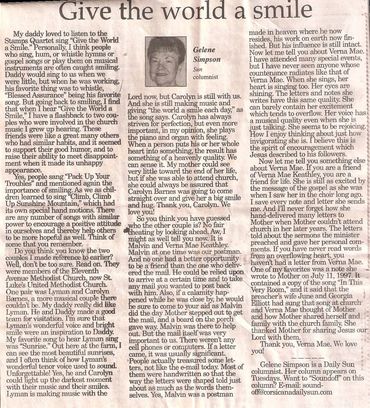 Give the world a smile
My daddy loved to listen to the
Stamps Quartet sing "Give the World
a Smile." Personally, I think people
who sing, hum, or whistle hymns or
gospel songs or play them on musical
instruments are often caught smiling.
Daddy would sing to us when we
were little, but when he was working,
his favorite thing was to whistle,
"Blessed Assurance" being his favorite
song. But getting back to smiling, I find
that when I hear "Give the World a
Smile," I have a flashback to two cou-
ples who were involved in the church
music I grew up hearing. These
friends were like a great many others
who had similar habits, and it seemed
to support their good humor, and to
raise their ability to meet disappoint-
ment when it made its unhappy
appearance.
Yes, people sang "Pack Up Your
Troubles" and mentioned again the
importance of smiling. As we as chil-
dren learned to sing "Climb, Climb
Up Sunshine Mountain," which had
its own special hand motions. There
are any number of songs with similar
power to encourage a positive attitude
in ourselves and thereby help others
to be more hopeful as well. Think of
some that you remember.
Do you think you know the two
couples I made reference to earlier?
Well, don't be too sure. Read on. They
were members of the Eleventh
Avenue Methodist Church, now St.
Luke's United Methodist Church.
One pair was Lyman and Carolyn
Barnes, a more musical couple there
couldn't be. My daddy really did like
Lyman. He and Daddy made a good
team for visitation. I'm sure that
Lyman's wonderful voice and bright
smile were an inspiration to Daddy.
My favorite song to hear Lyman sing
was "Sunrise." Out here at the farm, I
can see the most beautiful sunrises,
and I often think of how Lyman's
wonderful tenor voice used to sound.
Unforgettable! Yes, he and Carolyn
could light up the darkest moment
with their music and their smiles.
Lyman is making music with the
Gelene
Simpson
Sun
columnist
Lord now, but Carolyn is still with us.
And she is still making music and
giving "the world a smile each day," as
the song says. Carolyn has always
striven for perfection, but even more
important, in my opinion, she plays
the piano and organ with feeling.
When a person puts his or her whole
heart into something, the result has
something of a heavenly quality. We
can sense it. My mother could see
very little toward the end of her life,
but if she was able to attend church,
she could always be assured that
Carolyn Barnes was going to come
straight over and give her a big smile
and hug. Thank you, Carolyn. We
love you!
So you think you have guessed
who the other couple is? No fair
cheating by looking ahead. Aw, I
might as well tell you now. It is
Malvin and Verna Mae Keathley.
Malvin at one time was our postman.
And no one had a better opportunity
to be a friend than the one who deliv-
ered the mail. He could be relied upon
to arrive at a certain time and to take
any mail you wanted to post back
with him. Also, if a calamity hap-
pened while he was close by, he would
be sure to come to your aid as Malvin
did the day Mother stepped out to get
the mail, and a board on the porch
gave way. Malvin was there to help
out. But the mail itself was very
important to us. There weren't any
cell phones or computers. If a letter
came, it was usually significant.
People actually treasured some let-
ters, not like the e-mail today. Most of
them were handwritten so that the
way the letters were shaped told just
about as much as the words them-
selves. Yes, Malvin was a postman
made in heaven where he now
resides, his work on earth now fin-
ished. But his influence is still intact.
Now let me tell you about Verna Mae.
I have attended many special events,
but I have never seen anyone whose
countenance radiates like that of
Verna Mae. When she sings, her
heart is singing too. Her eyes are
shining. The letters and notes she
writes have this same quality. She
can barely contain her excitement
which tends to overflow. Her voice has
a musical quality even when she is
just talking. She seems to be rejoicing.
How I enjoy thinking about just how
invigorating she is. I believe this is
the spirit of encouragement which
Jesus described to his followers.
Now let me tell you something else
about Verna Mae. If you are a friend
of Verna Mae Keathley, you are a
friend for life. She is still as excited by
the message of the gospel as she was
when I saw her in the choir long ago.
I save every note and letter she sends
me. And I'll never forget how she
hand-delivered many letters to
Mother when Mother couldn't attend
church in her later years. The letters
told about the sermons the minister
preached and gave her personal com-
ments. If you have never read words
from an overflowing heart, you
haven't had a letter from Verna Mae.
One of my favorites was a note she
wrote to Mother on July 11, 1997. It
contained a copy of the song "In This
Very Room," and it said that the
preacher's wife June and George
Elliott had sung that song at church
and Verna Mae thought of Mother
and how Mother shared herself and
family with the church family. She
thanked Mother for sharing Jesus our
Lord with them.
Thank you, Verna Mae. We love
you!
Gelene Simpson is a Daily Sun
columnist. Her column appears on
Tuesdays. Want to "Soundoff" on this
column? E-mail: sound-
off@corsicanadailysun.com